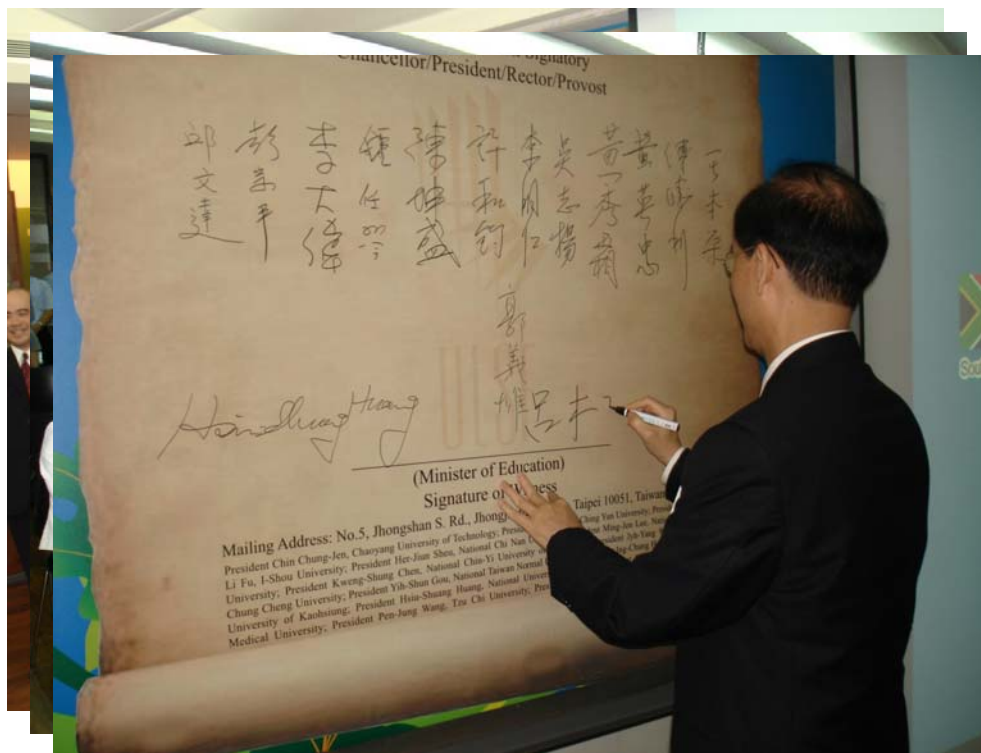 Signatory
Chancellor/President/Rector/Provost
王本榮
傅勝利
黃英忠
黃秀霜
吳志揚
李明仁
許和鈞
陳坤盛
鍾任
李大偉
彭宗平
邱文達
郭義雄
呂木
Huang
(Minister of Education)
Signature of Witness
Mailing Address: No.5, Jhongshan S. Rd., Jhong Taipei 10051, Taiwan
President Chin Chung-Jen, Chaoyang University of Technology; Presi Ching Yun University; Presi
Li Fu, I-Shou University; President Her-Jiun Sheu, National Chi Nan Ming-Jen Lee, Nati
University; President Kweng-Shung Chen, National Chin-Yi University President Jyh-Yang
Chung Cheng University; President Yih-Shun Gou, National Taiwan Normal
University of Kaohsiung; President Hsiu-Shuang Huang, National Univer
Medical University; President Pen-Jung Wang, Tzu Chi University; Pres
Sou